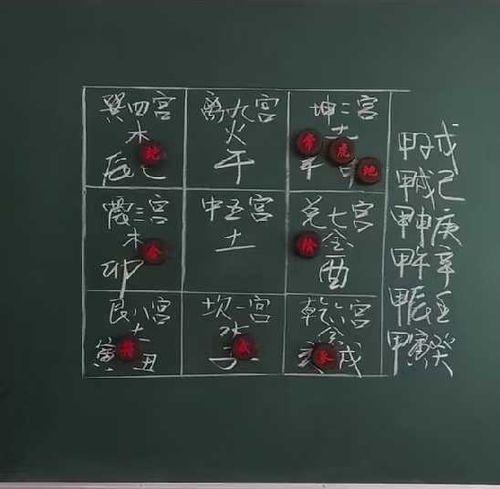 巽四宫
木
辰
離九宫
火
午
坤二宫
土
常
虎
地
震三宫
木
卯
中五宫
土
兑七宫
金
酉
艮八宫
土
寅
丑
坎一宫
水
子
乾六宫
金
戌
甲子戊
甲戌己
甲申庚
甲午辛
甲辰壬
甲寅癸